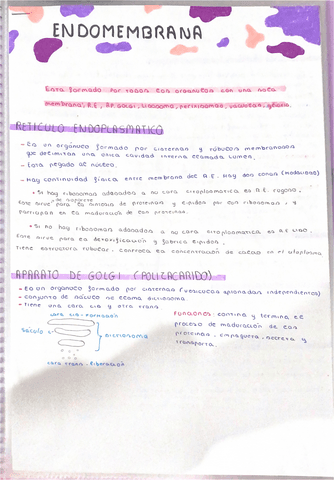 ENDOMEMBRANA
Esta formado por todos los organulos con una sola
membrana, R.E, AP. GOLGI, lisosoma, peroxisomas, vacuolas, glioxis.
RETICULO ENDOPLASMATICO
- Es un organulo formado por cisternas y túbulos membranosos
que delimitan una única cavidad interna llamada lumen.
- Esta pegado al núcleo.
- Hay continuidad física entre membrana del R.E. Hay dos zonas (modalidad)
• Si hay ribosomas adosados a la cara citoplasmatica es R.E rugoso.
Este sirve para la sintesis de proteinas y lipidos por los ribosomas. Y
participan en la maduración de las proteinas.
• Si no hay ribosomas adosados a la cara citoplasmatica es R.E liso.
Este sirve para la detoxificación y fabrica lipidos.
Tiene estructura tubular. Controla la concentración de calcio en el citoplasma
APARATO DE GOLGI (POLISACARIDO)
- Es un organulo formado por cisternas (vesiculas aplanadas independientes)
- conjunto de sáculo se llama dictiosoma
- Tiene una cara cis y otra trans
cara cis - formación
sáculo
dictiosoma
cara trans - liberación
Funciones: continua y termina el
proceso de maduración de las
proteinas, empaqueta, secreta y
transporta.